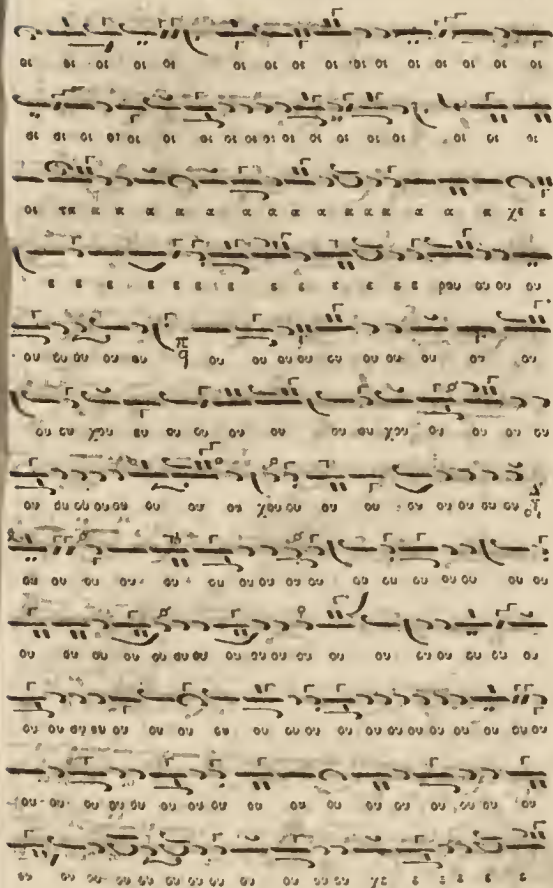 οι οι οι οι οι οι οι οι οι οι οι οι οι οι οι οι
οι οι οι οι οι οι οι οι οι οι οι οι οι οι οι οι οι οι οι
οι πα α α α α α α α α α α α α α α α χε ε
ε ε ε ε ε ε ε ε ε ε ε ε ε ε ρου ου ου ου
ου ου ου ου ου π q ου ου ου ου ου ου ου ου ου ου
ου ου χου ου ου ου ου ου ου ου χου ου ου ου
ου ου ου ου ου ου ου ου χου ου ου ου ου ου ου ου ου Δ
ου ου ου ου ου ου ου ου ου ου ου ου ου ου ου ου ου
ου ου ου ου ου ου ου ου ου ου ου ου ου ου ου ου ου
ου ου ου ου ου ου ου ου ου ου ου ου ου ου ου ου ου ου ου ου
ου ου ου ου ου ου ου ου ου ου ου ου ου ου ου ου ου
ου ου ου ου ου ου ου ου ου ου ου ου χε ε ε ε ε ε